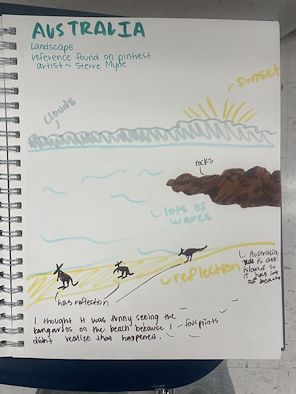 AUSTRALIA
Landscape
reference found on pintrest
artist ~ Sterre Myde
sunset
clouds
rocks
lots of
waves
reflection
Australia
is an
island so
it has lots
of beaches
has reflection
I thought it was funny seeing the
kangaroos on the beach because I
didn't realize that happened.
footprints